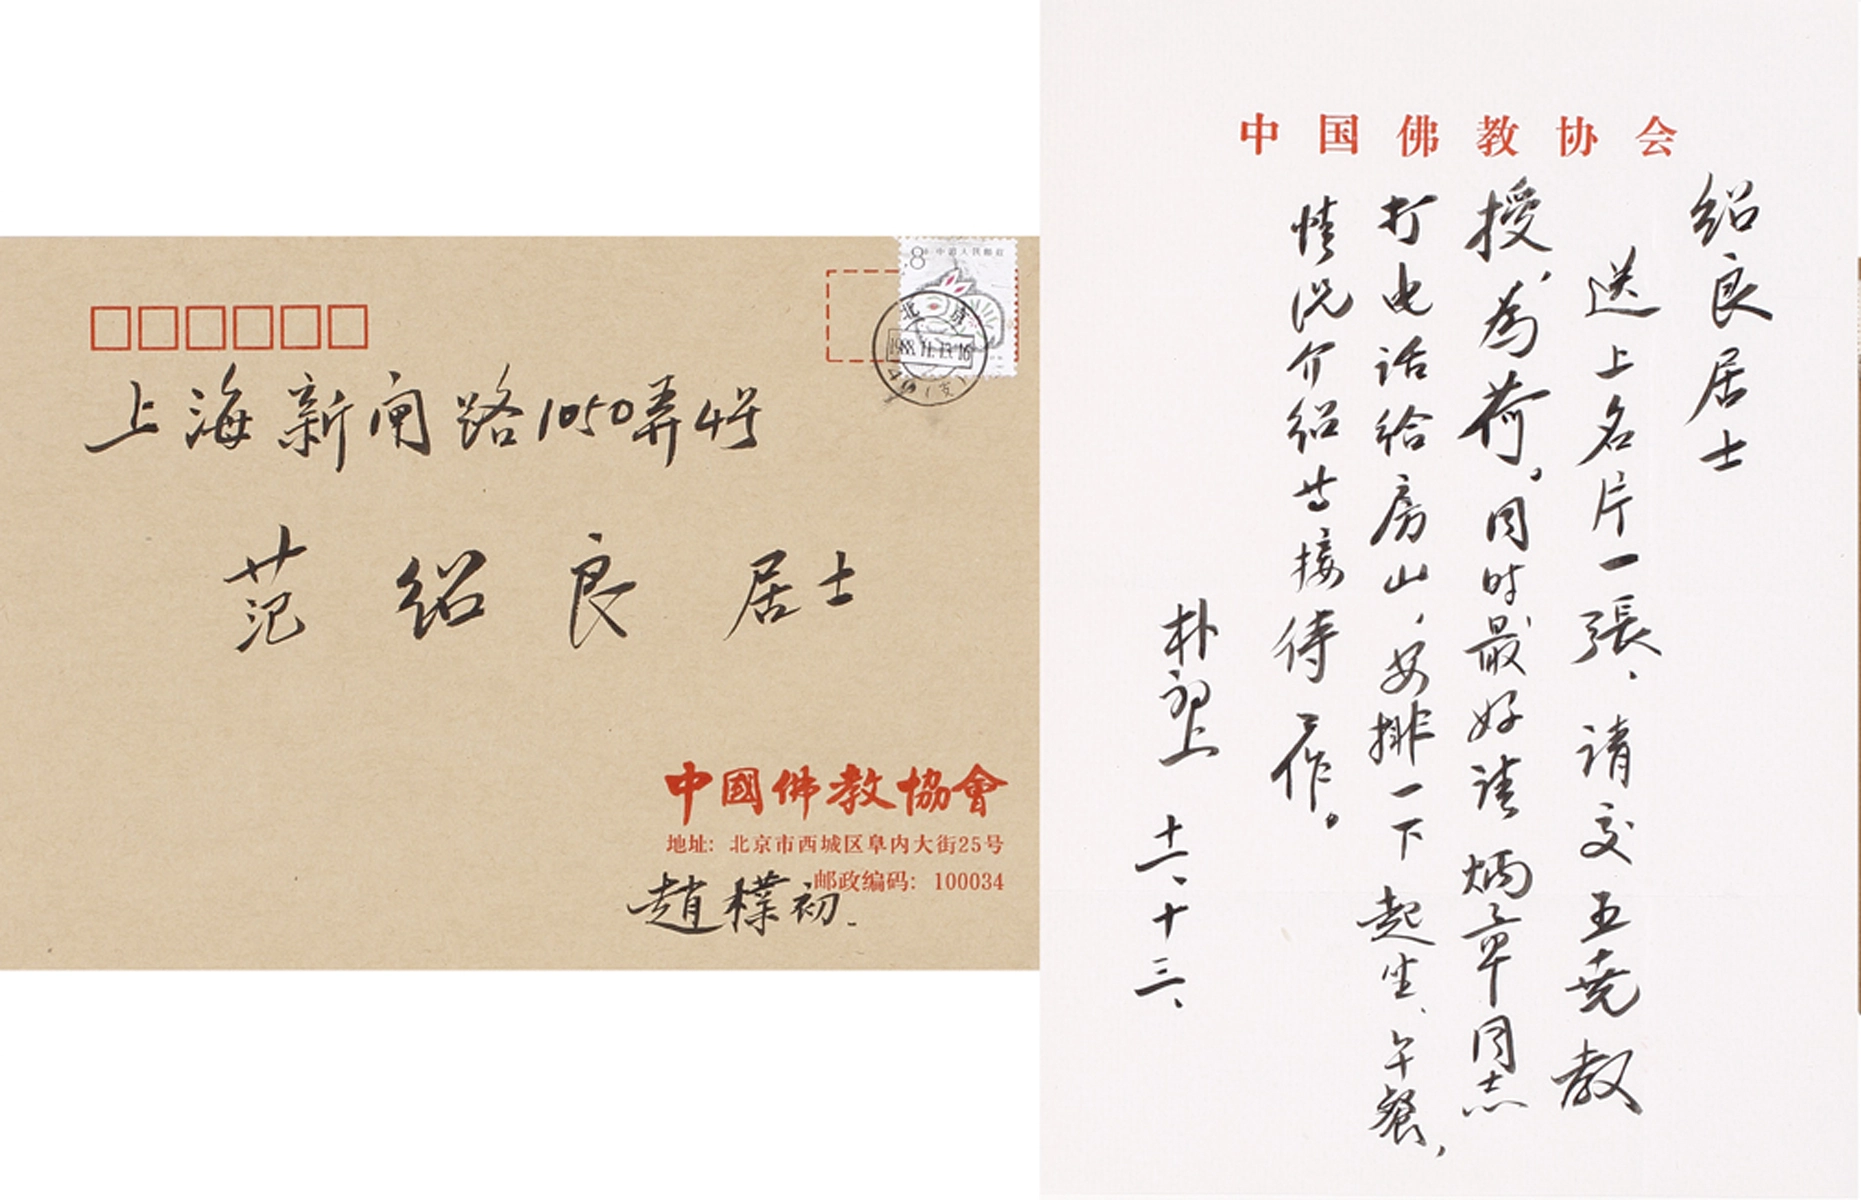 8分 中国人民邮政
北京
1988.11.13.16
(支)
上海新闸路1050弄4号
范绍良居士
中國佛教協會
地址：北京市西城区阜内大街25号
邮政编码：100034
趙樸初
中国佛教协会
绍良居士
送上名片一張、请交五堯教
授，為荷。同时最好请炳章同志
打电话给房山，安排一下起坐、午餐，
情况介绍等接待工作。
朴初上
十一、十三、